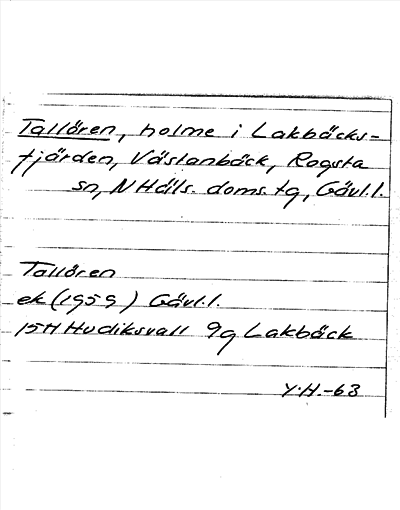 Tallören, holme i Lakbäcks-
fjärden, Västanbäck, Rogsta
sn, N Häls. doms. tg, Gävl.l.
Tallören
ek (1959) Gävl.l.
15H Hudiksvall 9g Lakbäck
Y.H.-63